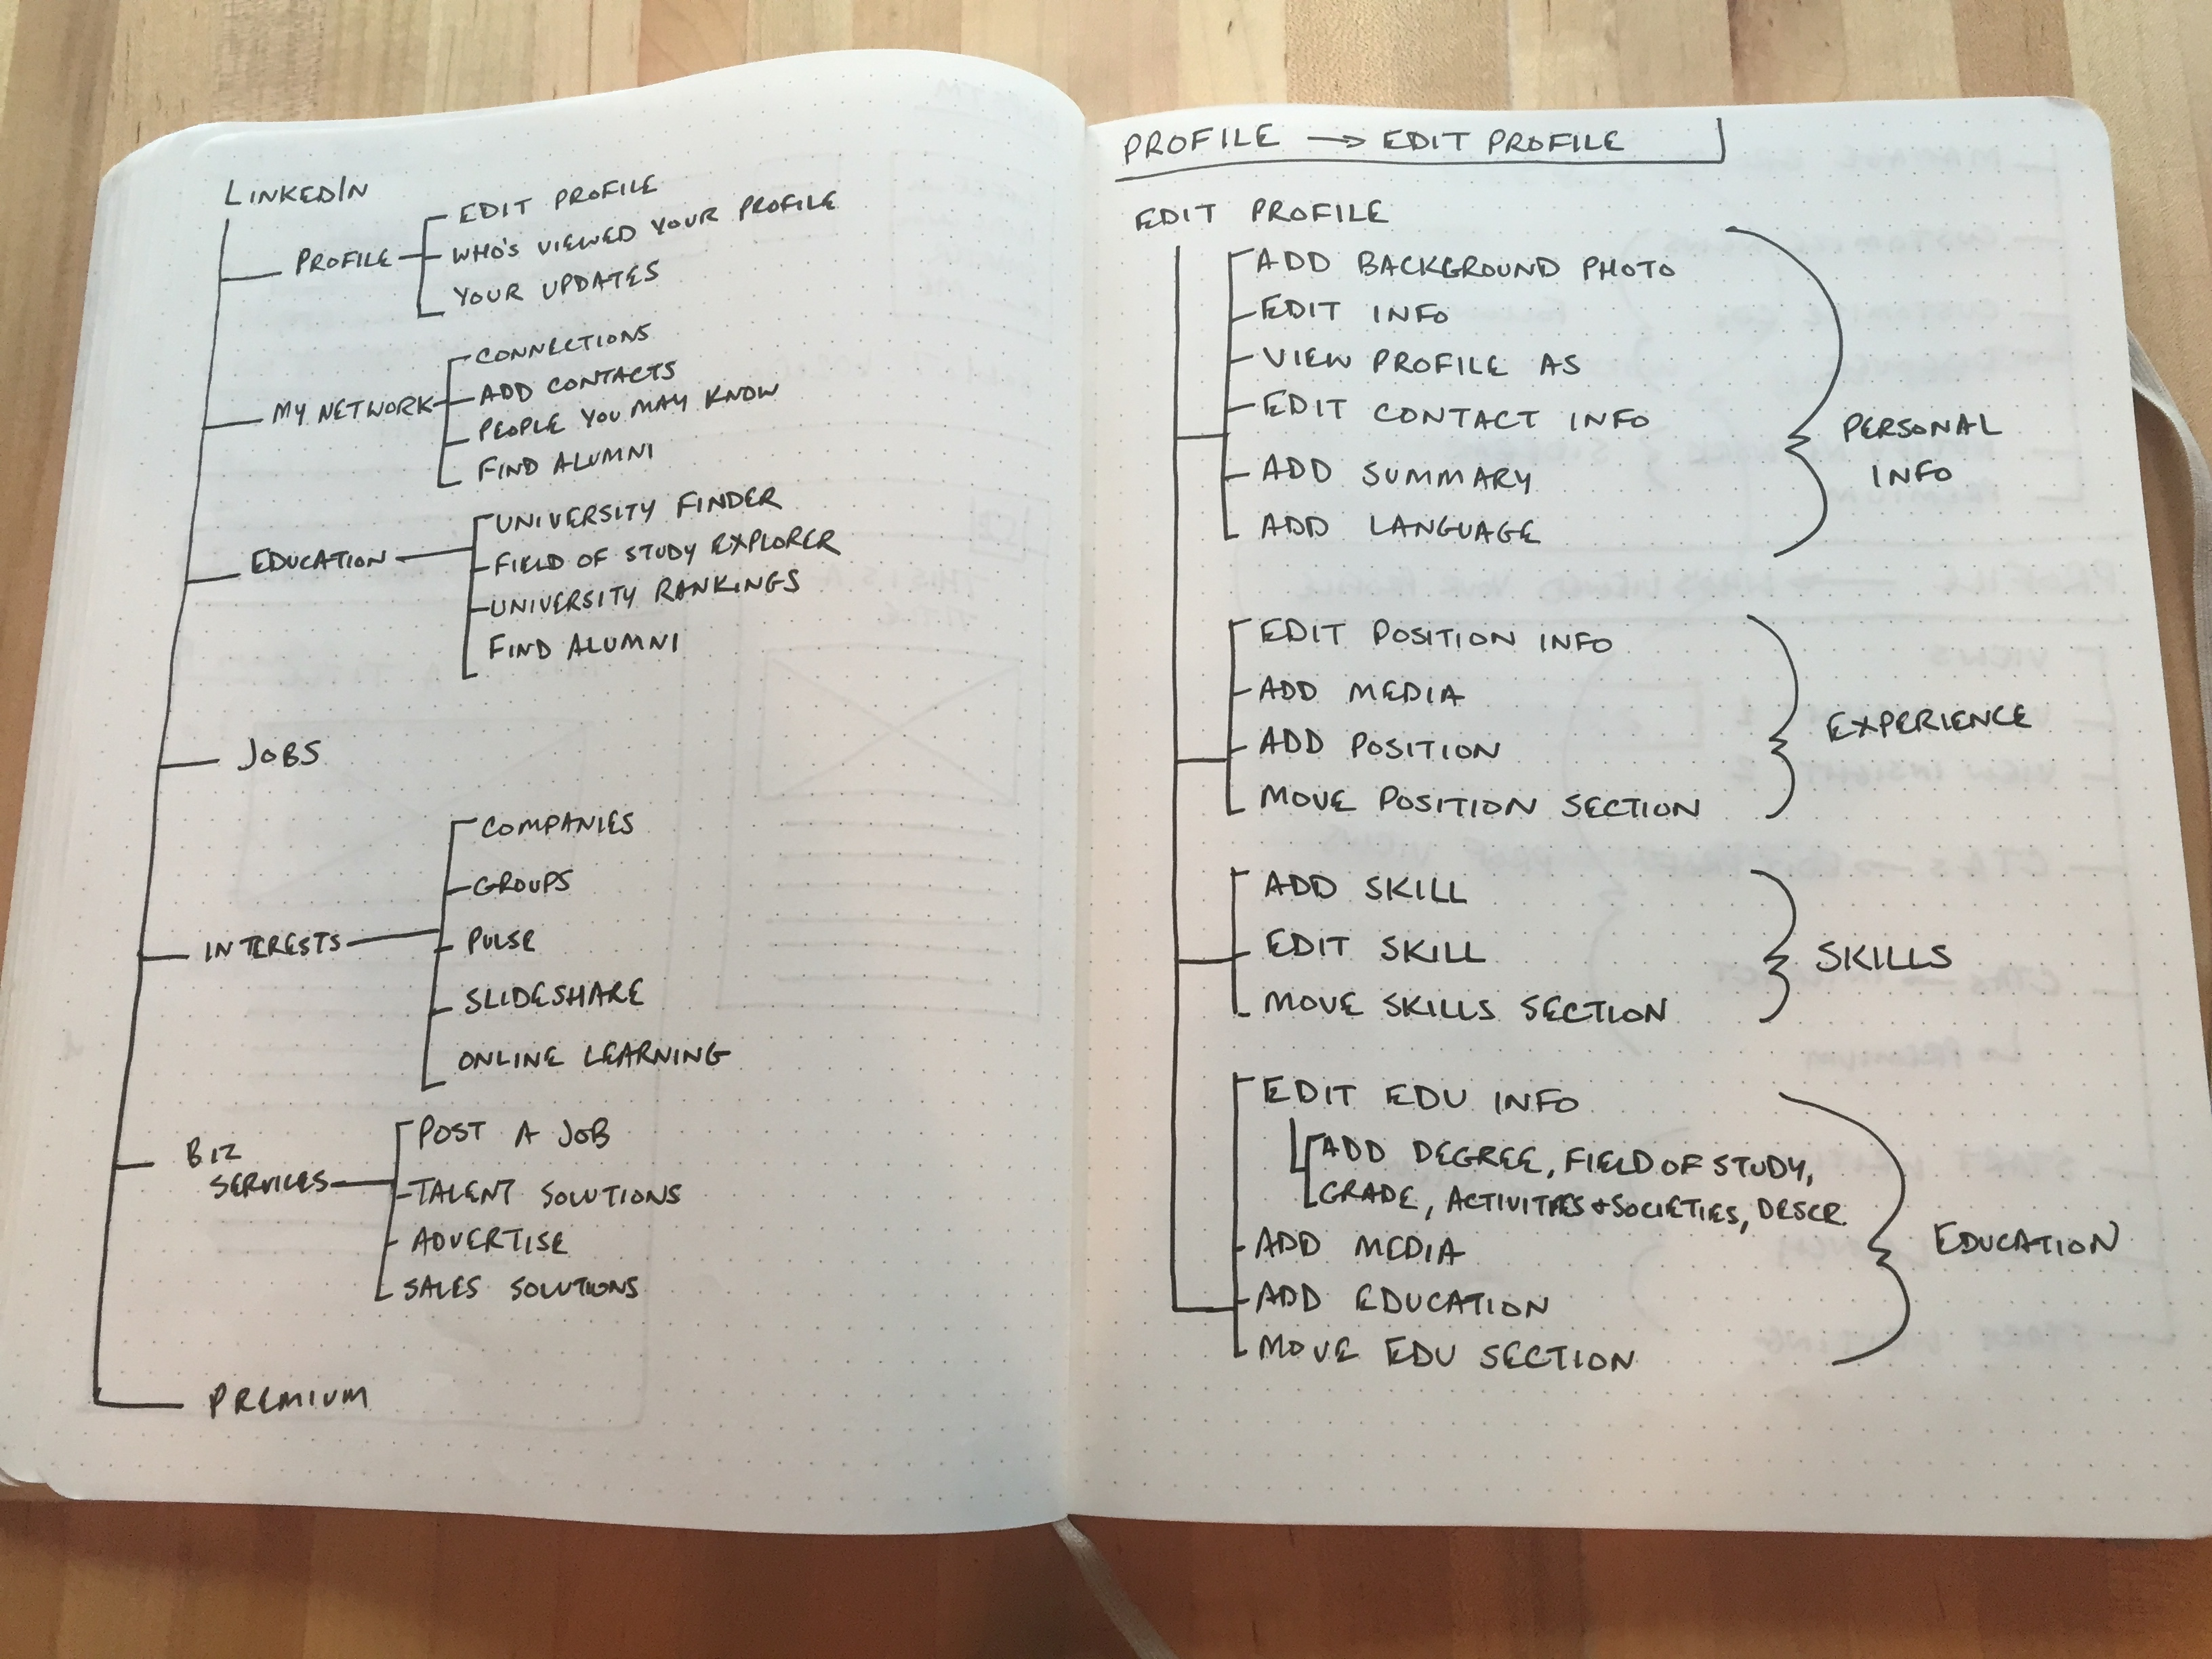 LINKEDIN
PROFILE
EDIT PROFILE
WHO'S VIEWED YOUR PROFILE
YOUR UPDATES
MY NETWORK
CONNECTIONS
ADD CONTACTS
PEOPLE YOU MAY KNOW
FIND ALUMNI
EDUCATION
UNIVERSITY FINDER
FIELD OF STUDY EXPLORER
UNIVERSITY RANKINGS
FIND ALUMNI
JOBS
INTERESTS
COMPANIES
GROUPS
PULSE
SLIDESHARE
ONLINE LEARNING
BIZ
SERVICES
POST A JOB
TALENT SOLUTIONS
ADVERTISE
SALES SOLUTIONS
PREMIUM
PROFILE → EDIT PROFILE
EDIT PROFILE
ADD BACKGROUND PHOTO
EDIT INFO
VIEW PROFILE AS
EDIT CONTACT INFO
ADD SUMMARY
ADD LANGUAGE
PERSONAL
INFO
EDIT POSITION INFO
ADD MEDIA
ADD POSITION
MOVE POSITION SECTION
EXPERIENCE
ADD SKILL
EDIT SKILL
MOVE SKILLS SECTION
SKILLS
EDIT EDU INFO
ADD DEGREE, FIELD OF STUDY,
GRADE, ACTIVITIES + SOCIETIES, DESCR.
ADD MEDIA
ADD EDUCATION
MOVE EDU SECTION
EDUCATION